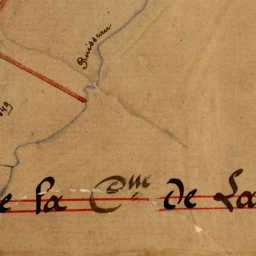 Ruisseau
e la Cⁿᵉ de La